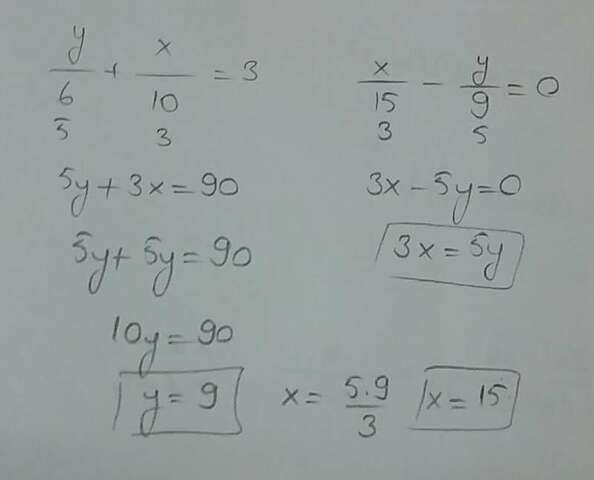 y/6 + x/10 = 3
5 3
x/15 - y/9 = 0
3 5
5y + 3x = 90
3x - 5y = 0
5y + 5y = 90
3x = 5y
10y = 90
y = 9
x = 5.9/3
x = 15